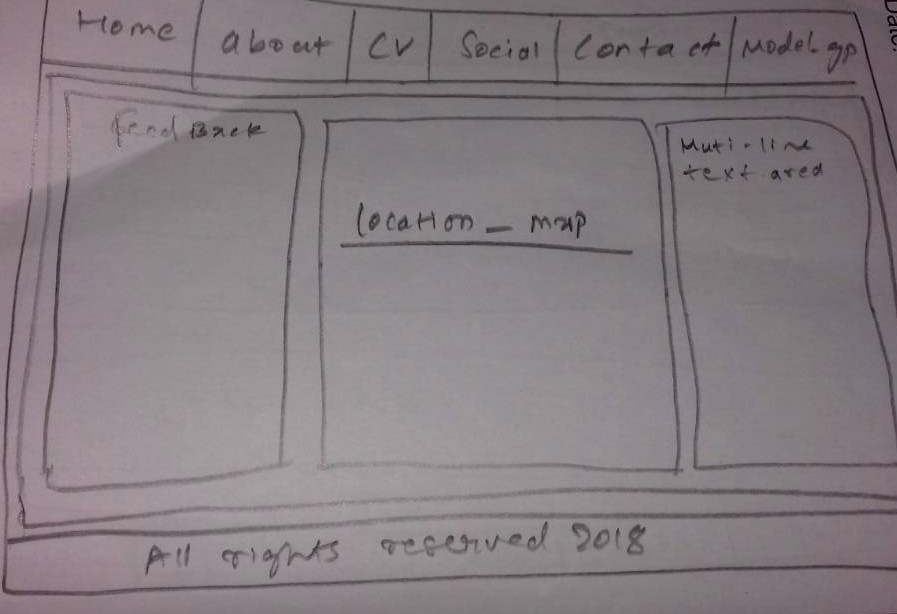 Home about CV Social Contact Model-gp
feed Back
location_map
Muti-line
text area
All rights reserved 2018
Date: